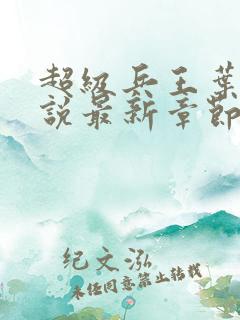 超级兵王葉
說最新章節
纪文泓
未经同意禁止转载